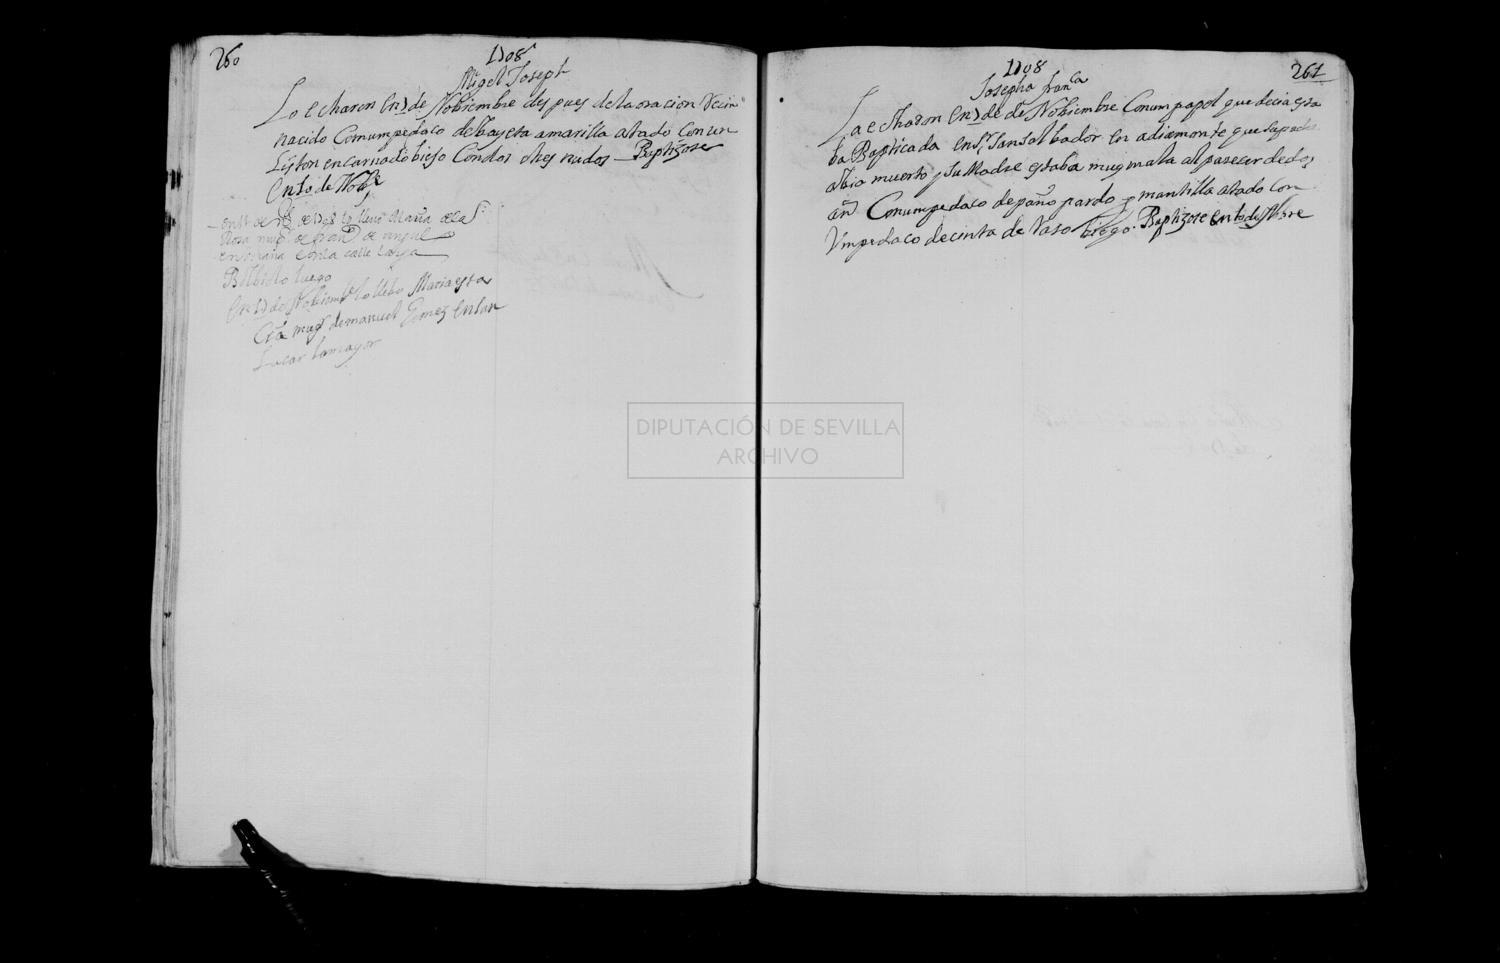 260
1708
Migel Joseph
Lo echaron en 7 de Nobiembre despues de la oracion Recin
nacido Con un pedaco de bayeta amarilla atado con un
liston encarnado biejo Con dos ojos nudos — Baptizose
En 10 de Nobe
lo llevo Maria de la
Rosa mugr de franco de
en triana en la calle larga
Bolbiolo luego
En 17 de Nobiembe lo llebo Maria
mugr de manuel Gomez En San
Lucar la mayor
1708
261
Josepha franca
La echaron En 7 de de Nobiembre Con un papel que decia esta
ba Baptiçada en Sn Salbador en adiamonte que su padre
abia muerto y su Madre estaba muy mala al parecer de dos
as Con un pedaco de paño pardo y mantilla atado con
Un pedaco de cinta de Raso biego. Baptizose en 10 de Nbre
DIPUTACIÓN DE SEVILLA
ARCHIVO